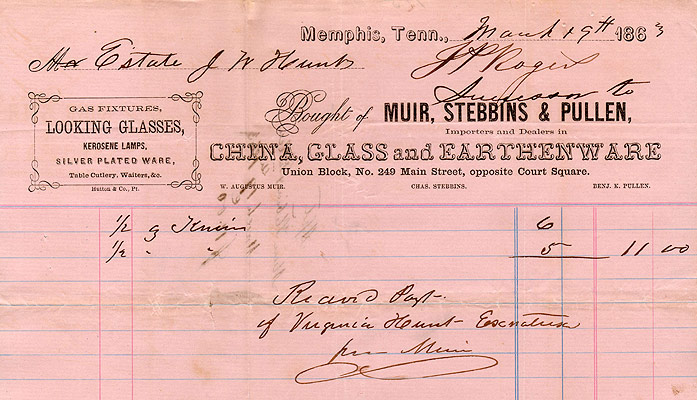 Memphis, Tenn., March 19th 1863
Estate J W Hunt
J P Rogers
Successor to
Bought of MUIR, STEBBINS & PULLEN,
Importers and Dealers in
CHINA, GLASS and EARTHENWARE
Union Block, No. 249 Main Street, opposite Court Square.
W. AUGUSTUS MUIR. CHAS. STEBBINS. BENJ. K. PULLEN.
GAS FIXTURES,
LOOKING GLASSES,
KEROSENE LAMPS,
SILVER PLATED WARE,
Table Cutlery, Waiters, &c.
Hutton & Co., Pt.
1/2 g Knives 6
1/2 " " 5 11 00
Recevd Payt.
of Virginia Hunt Executrix
per Muir